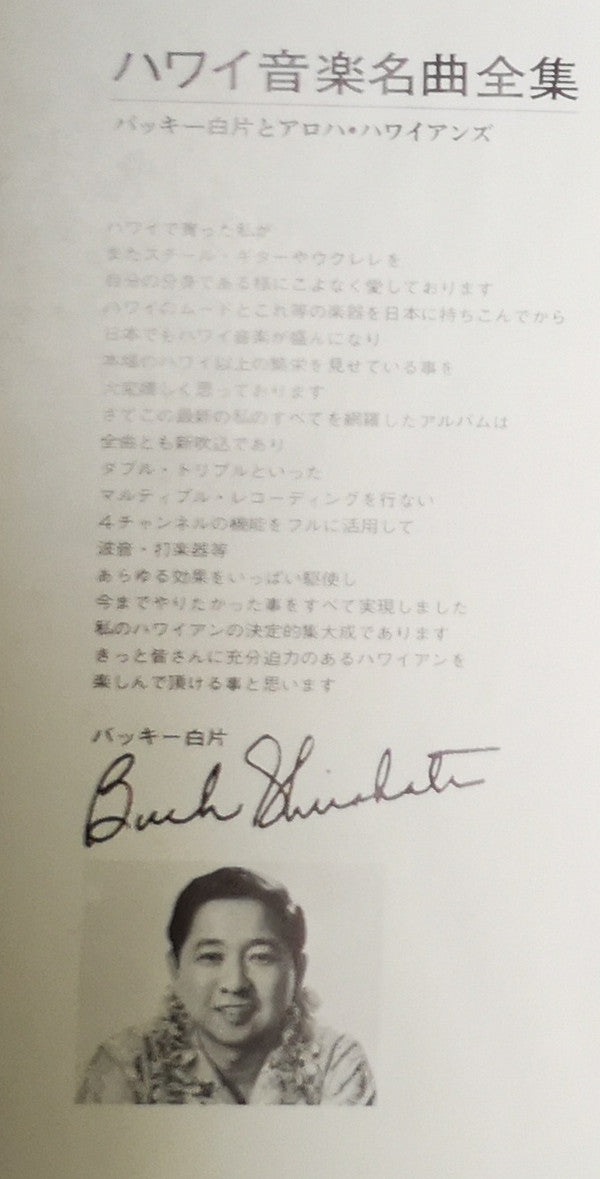 ハワイ音楽名曲全集
バッキー白片とアロハ・ハワイアンズ
ハワイで育った私が
またスチール・ギターやウクレレを
自分の分身である様にこよなく愛しております
ハワイのムードとこれ等の楽器を日本に持ちこんでから
日本でもハワイ音楽が盛んになり
本場のハワイ以上の繁栄を見せている事を
大変嬉しく思っております
さてこの最新の私のすべてを網羅したアルバムは
全曲とも新吹込であり
ダブル・トリプルといった
マルティプル・レコーディングを行ない
4チャンネルの機能をフルに活用して
波音・打楽器等
あらゆる効果をいっぱい駆使し
今までやりたかった事をすべて実現しました
私のハワイアンの決定的集大成であります
きっと皆さんに充分迫力のあるハワイアンを
楽しんで頂ける事と思います
バッキー白片
Buck Shirakata